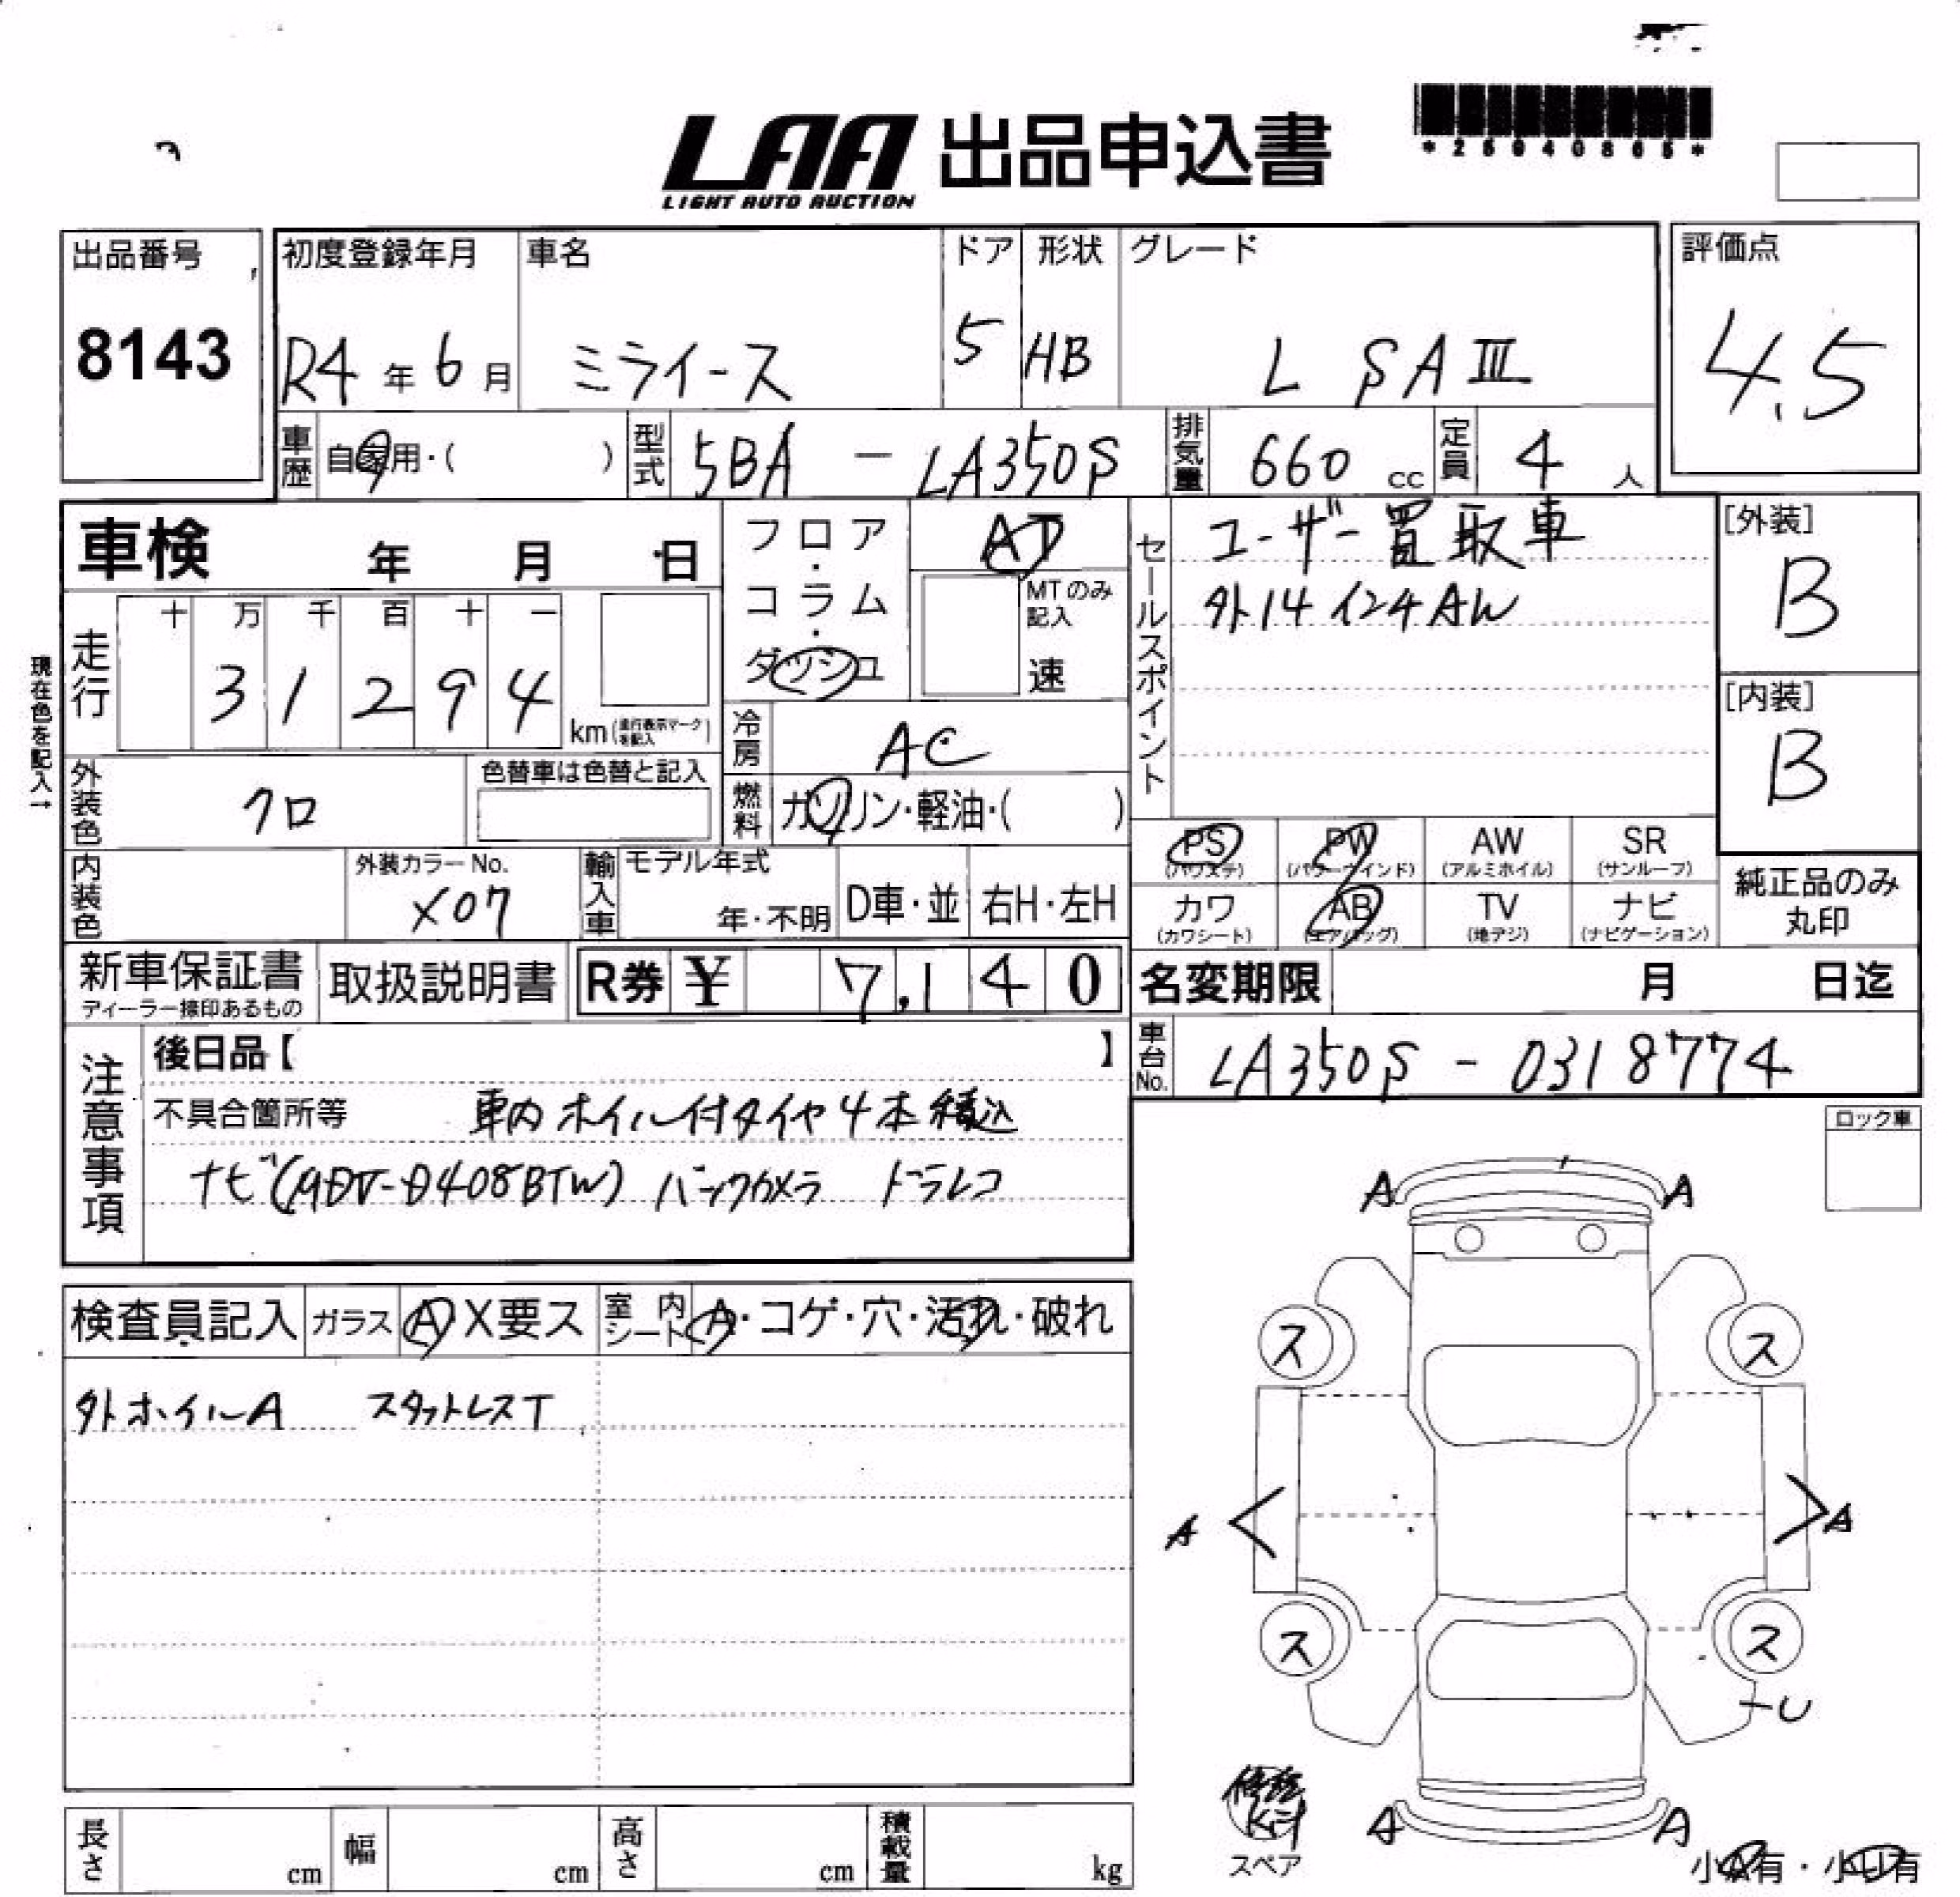 LAA 出品申込書
LIGHT AUTO AUCTION
*25040805*
出品番号
8143
初度登録年月 車名 ドア 形状 グレード
R4年6月 ミライース 5 HB L SAⅢ
評価点
4.5
車歴 自家用・( ) 型式 5BA - LA350S 排気量 660 cc 定員 4 人
車検 年 月 日
フロア・コラム・ダッシュ
AT
MTのみ記入
速
セールスポイント
ユーザー買取車
外14インチAW
[外装]
B
[内装]
B
現在色を記入→
走行 十 万 千 百 十 一
3 1 2 9 4
km (走行表示マークを記入)
冷房 AC
外装色 クロ 色替車は色替と記入
燃料 ガソリン・軽油・( )
内装色 外装カラーNo. X07
輸入車 モデル年式 年・不明 D車・並 右H・左H
PS (パワステ) PW (パワーウインド) AW (アルミホイル) SR (サンルーフ)
カワ (カワシート) AB (エアバッグ) TV (地デジ) ナビ (ナビゲーション)
純正品のみ
丸印
新車保証書 ディーラー捺印あるもの 取扱説明書 R券 ¥ 7,140
名変期限 月 日迄
車台No. LA350S - 0318774
注意事項
後日品【 】
不具合箇所等 車内ホイル付タイヤ4本積込
ナビ(MDV-D408BTW) バックカメラ ドラレコ
ロック車
A A
検査員記入 ガラス A X要ス 室内シート A・コゲ・穴・汚れ・破れ
外ホイルA スタットレスT
ス ス
A A
ス ス
U
修理Kit
スペア
A A
小A有・小U有
長さ cm 幅 cm 高さ cm 積載量 kg